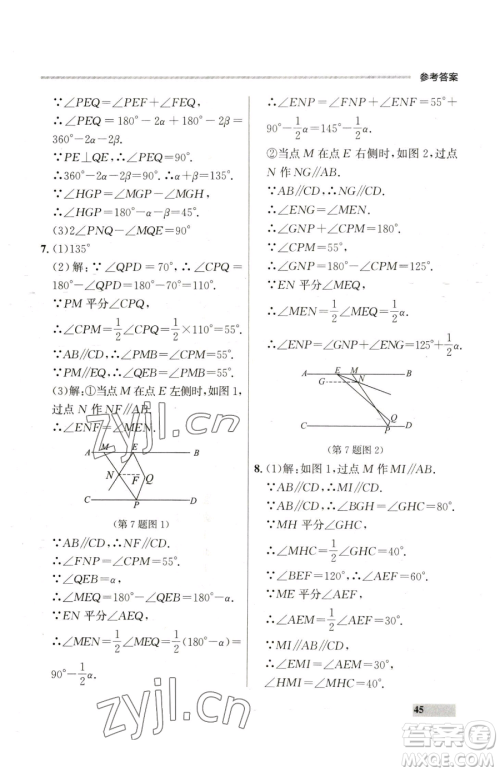 参考答案
∵∠PEQ=∠PEF+∠FEQ,
∴∠PEQ=180°-2α+180°-2β=
360°-2α-2β.
∵PE⊥QE,∴∠PEQ=90°.
∴360°-2α-2β=90°,∴α+β=135°.
∵∠HGP=∠MGP-∠MGH,
∴∠HGP=180°-α-β=45°.
(3)2∠PNQ-∠MQE=90°
7. (1)135°
(2)解:∵∠QPD=70°,∴∠CPQ=
180°-∠QPD=180°-70°=110°.
∵PM平分∠CPQ,
∴∠CPM=1/2∠CPQ=1/2×110°=55°.
∵AB∥CD,∴∠PMB=∠CPM=55°.
∵PM∥EQ,∴∠QEB=∠PMB=55°.
(3)解:①当点M在点E左侧时,如图1,
过点N作NF∥AB.
∴∠ENF=∠MEN.
A M E B
N F Q
C P D
(第7题图1)
∵AB∥CD,∴NF∥CD.
∴∠FNP=∠CPM=55°.
∵∠QEB=α,
∴∠MEQ=180°-∠QEB=180°-α.
∵EN平分∠AEQ,
∴∠MEN=1/2∠MEQ=1/2(180°-α)=
90°-1/2α.
∴∠ENP=∠FNP+∠ENF=55°+
90°-1/2α=145°-1/2α.
②当点M在点E右侧时,如图2,过点
N作NG∥AB.
∵AB∥CD,∴NG∥CD.
∴∠ENG=∠MEN.
∴∠GNP+∠CPM=180°.
∵∠CPM=55°,
∴∠GNP=180°-55°=125°.
∵EN平分∠MEQ,
∴∠MEN=1/2∠MEQ=1/2α.
∴∠ENP=∠GNP+∠ENG=125°+1/2α.
A E M B
G N
Q
C P D
(第7题图2)
8. (1)解:如图1,过点M作MI∥AB.
∵AB∥CD,∴∠BGH=∠GHC=80°.
∵MH平分∠GHC,
∴∠MHC=1/2∠GHC=40°.
∵∠BEF=120°,∴∠AEF=60°.
∵ME平分∠AEF,
∴∠AEM=1/2∠AEF=30°.
∵MI∥AB∥CD,
∴∠EMI=∠AEM=30°,
∠HMI=∠MHC=40°.
45
zyjl.cn
zyjl.cn
答案圈
MXQE.COM